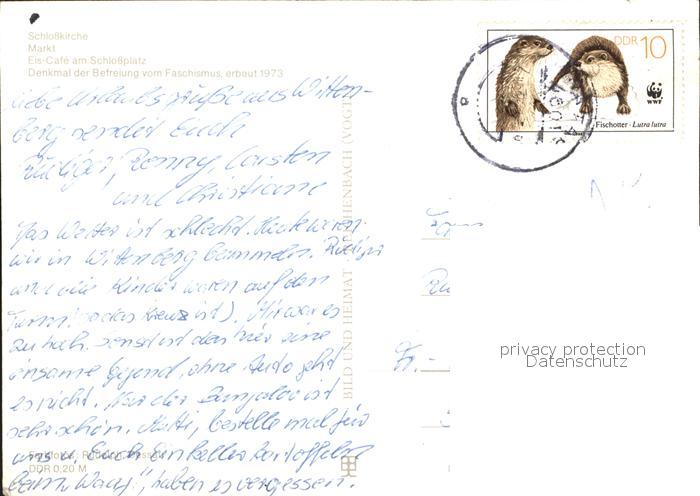 Schloßkirche
Markt
Eis-Café am Schloßplatz
Denkmal der Befreiung vom Faschismus, erbeut 1973
Liebe Urlaubsgrüße aus Witten-
berg sendet Euch
Rüdiger, Ronny, Carsten
und Christiane
Das Wetter ist schlecht. Heute waren
wir in Wittenberg bummeln. Rüdiger
und die Kinder waren auf den
Turm (wo das Kreuz ist). Mir war es
zu hoch. Sonst ist das hier eine
einsame Gegend, ohne Auto geht
es nicht. Nur der Bungalow ist
sehr schön. Mutti, bestelle mal für
uns u. Euch Einkellerkartoffeln
beim, haben es vergessen.
DDR 0,20 M
BILD UND HEIMAT REICHENBACH (VOGTL
DDR 10
WWF
Fischotter · Lutra lutra
Fr.-
privacy protection
Datenschutz